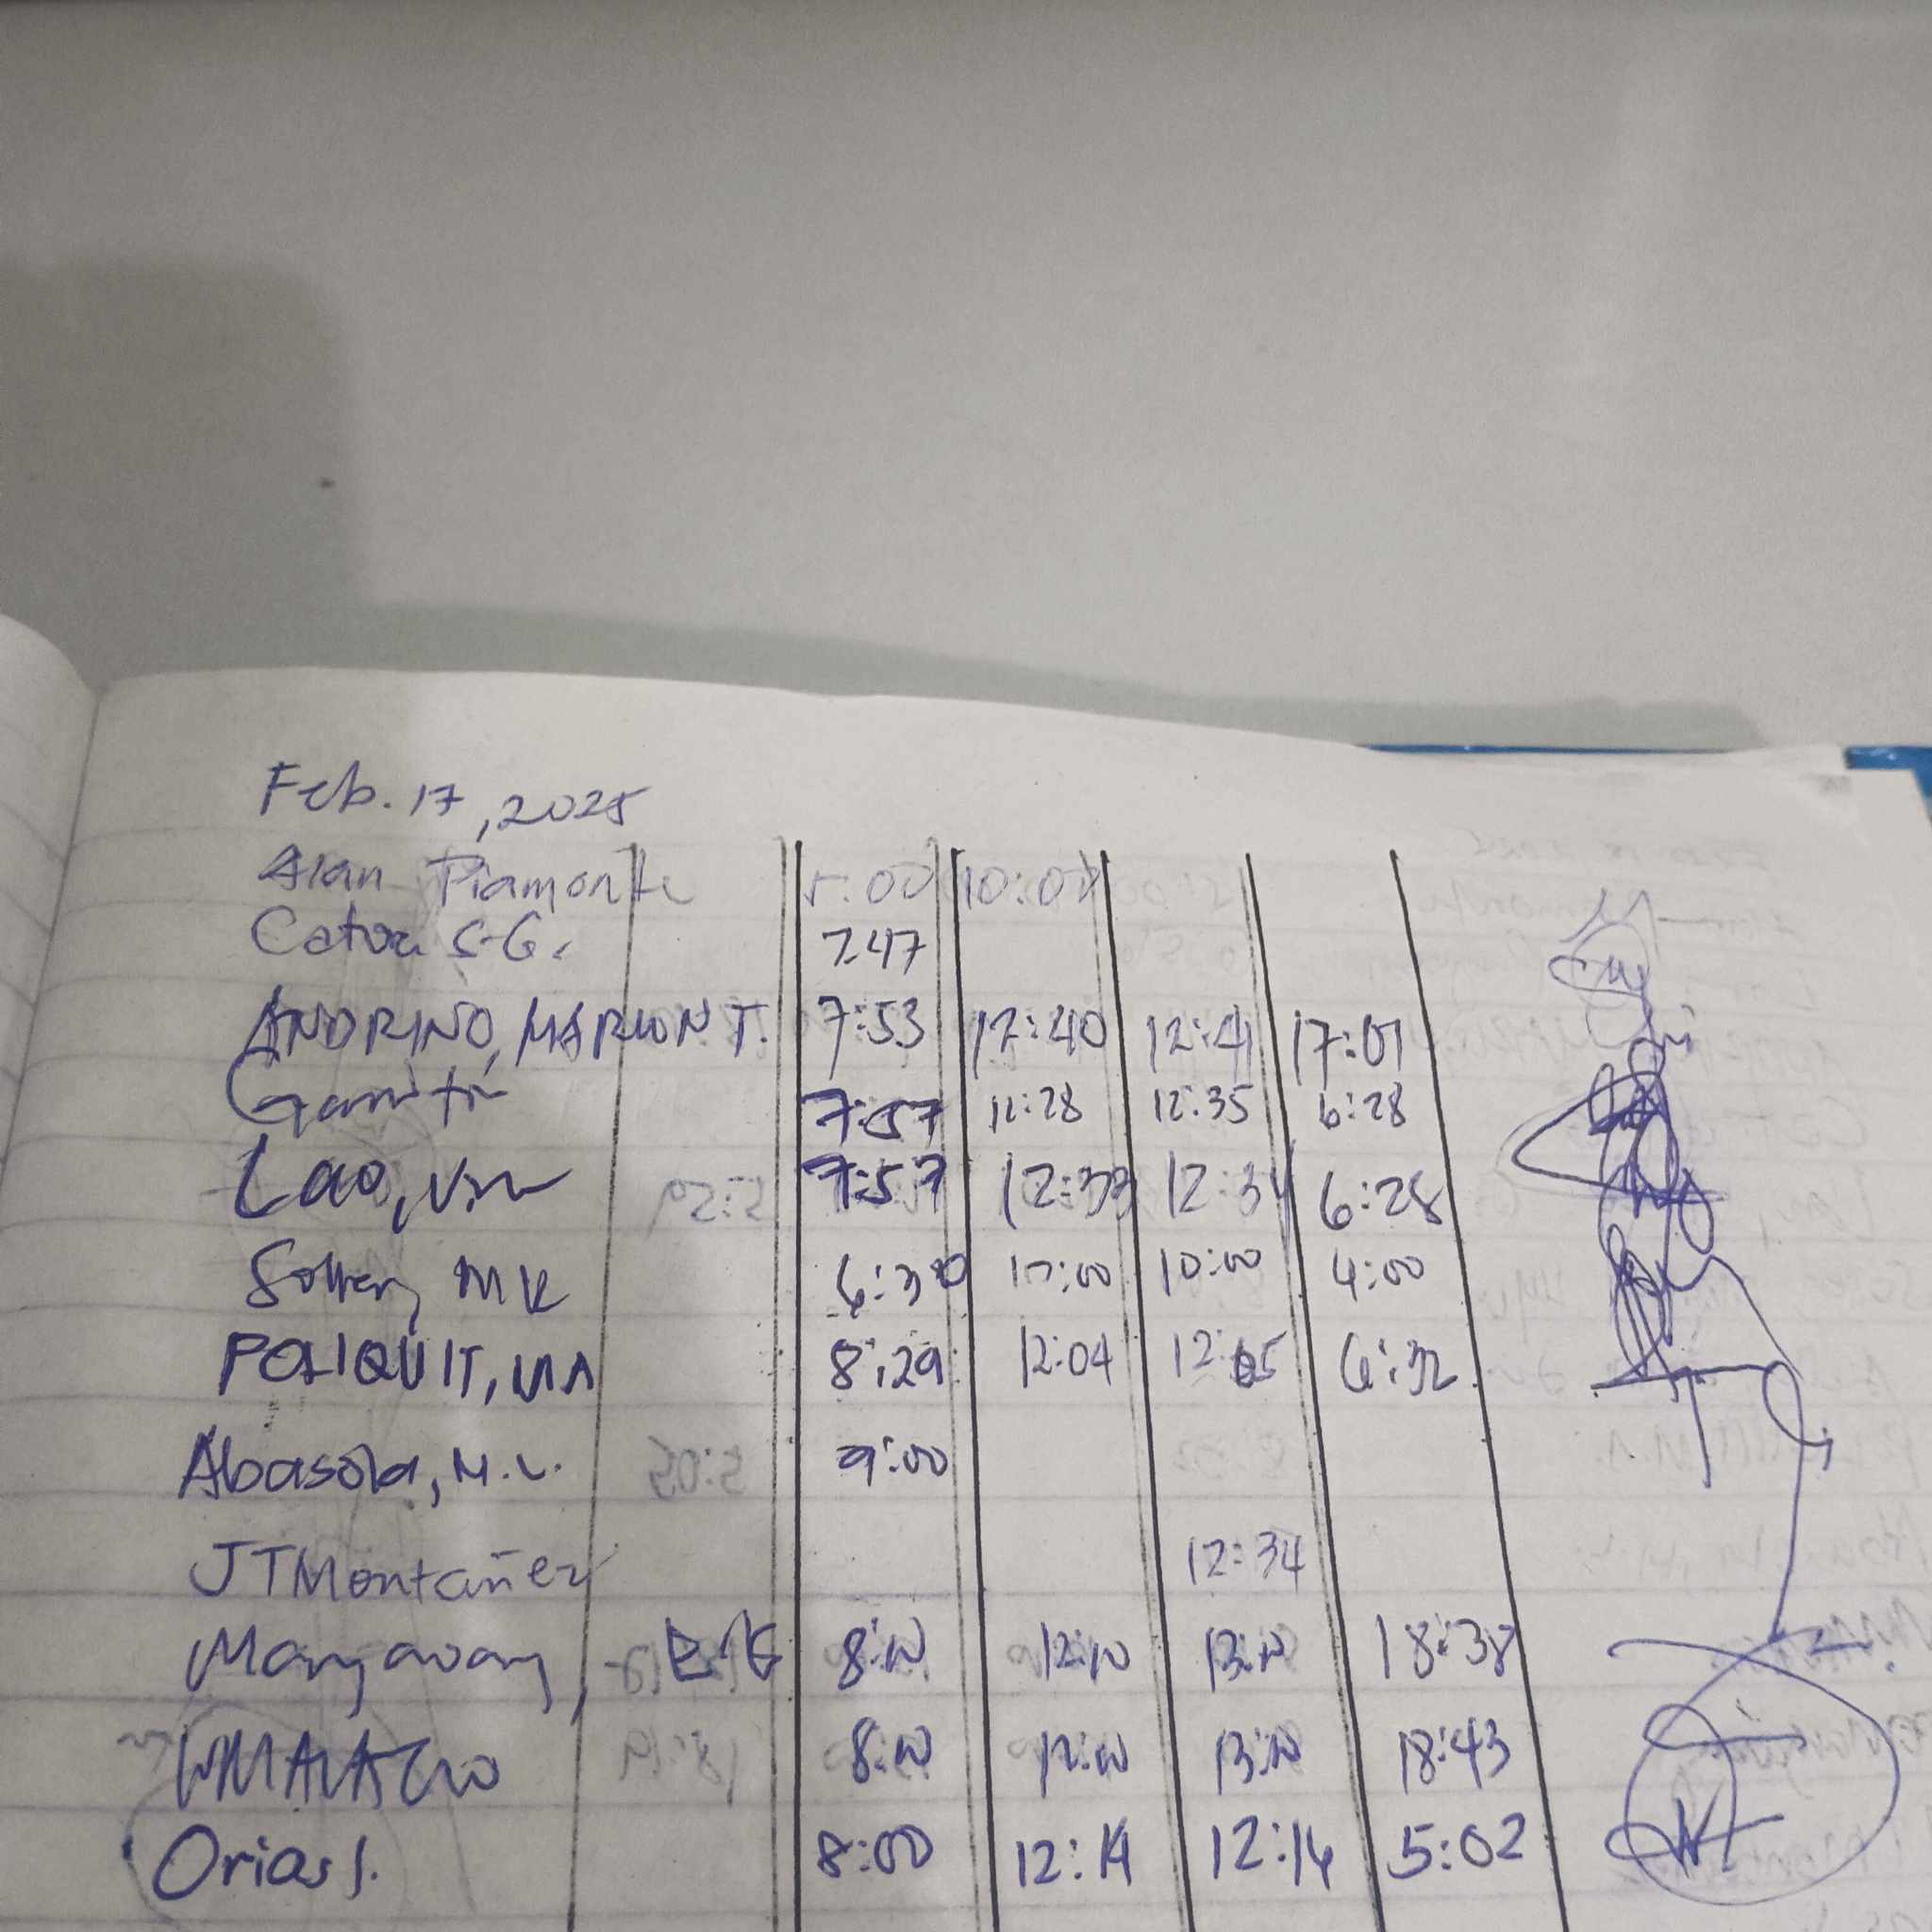 Feb. 17, 2025
Alan Piamonte 5:00 10:00
Catora S.G. 7:47
ANDRINO, MARLON T. 7:53 12:40 12:41 17:01
7:57 12:28 12:35 6:28
Lao, 7:57 12:33 12:34 6:28
MK 6:30 10:00 4:00
POLIQUIT, MA 8:29 12:04 12:05 6:32
Abasola, M.L. 9:00
JTMontañez 12:34
8:00 12:00 13:00 18:38
8:00 12:00 13:00 18:43
Orias J. 8:00 12:14 12:14 5:02